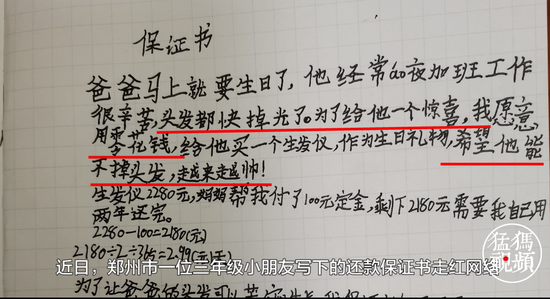 保证书
爸爸马上就要生日了,他经常ao夜加班工作
很辛苦,头发都快掉光了。为了给他一个惊喜,我愿意
用零花钱,给他买一个生发仪,作为生日礼物,希望他能
不掉头发,越来越帅!
生发仪2280元,妈妈帮我付了100元定金,剩下2180元需要我自己用
两年还完。
2280-100=2180(元)
2180÷2÷365=2.99
猛犸视频
近日，郑州市一位三年级小朋友写下的还款保证书走红网络
为了让爸爸的头发可以